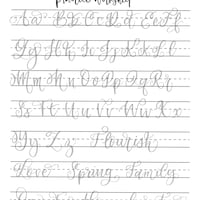 practice worksheet
Aa Bb Cc Dd Ee Ff
Gg Hh Ii Jj Kk Ll
Mm Nn Oo Pp Qq Rr
Ss Tt Uu Vv Ww Xx
Yy Zz Flourish
Love Spring Family